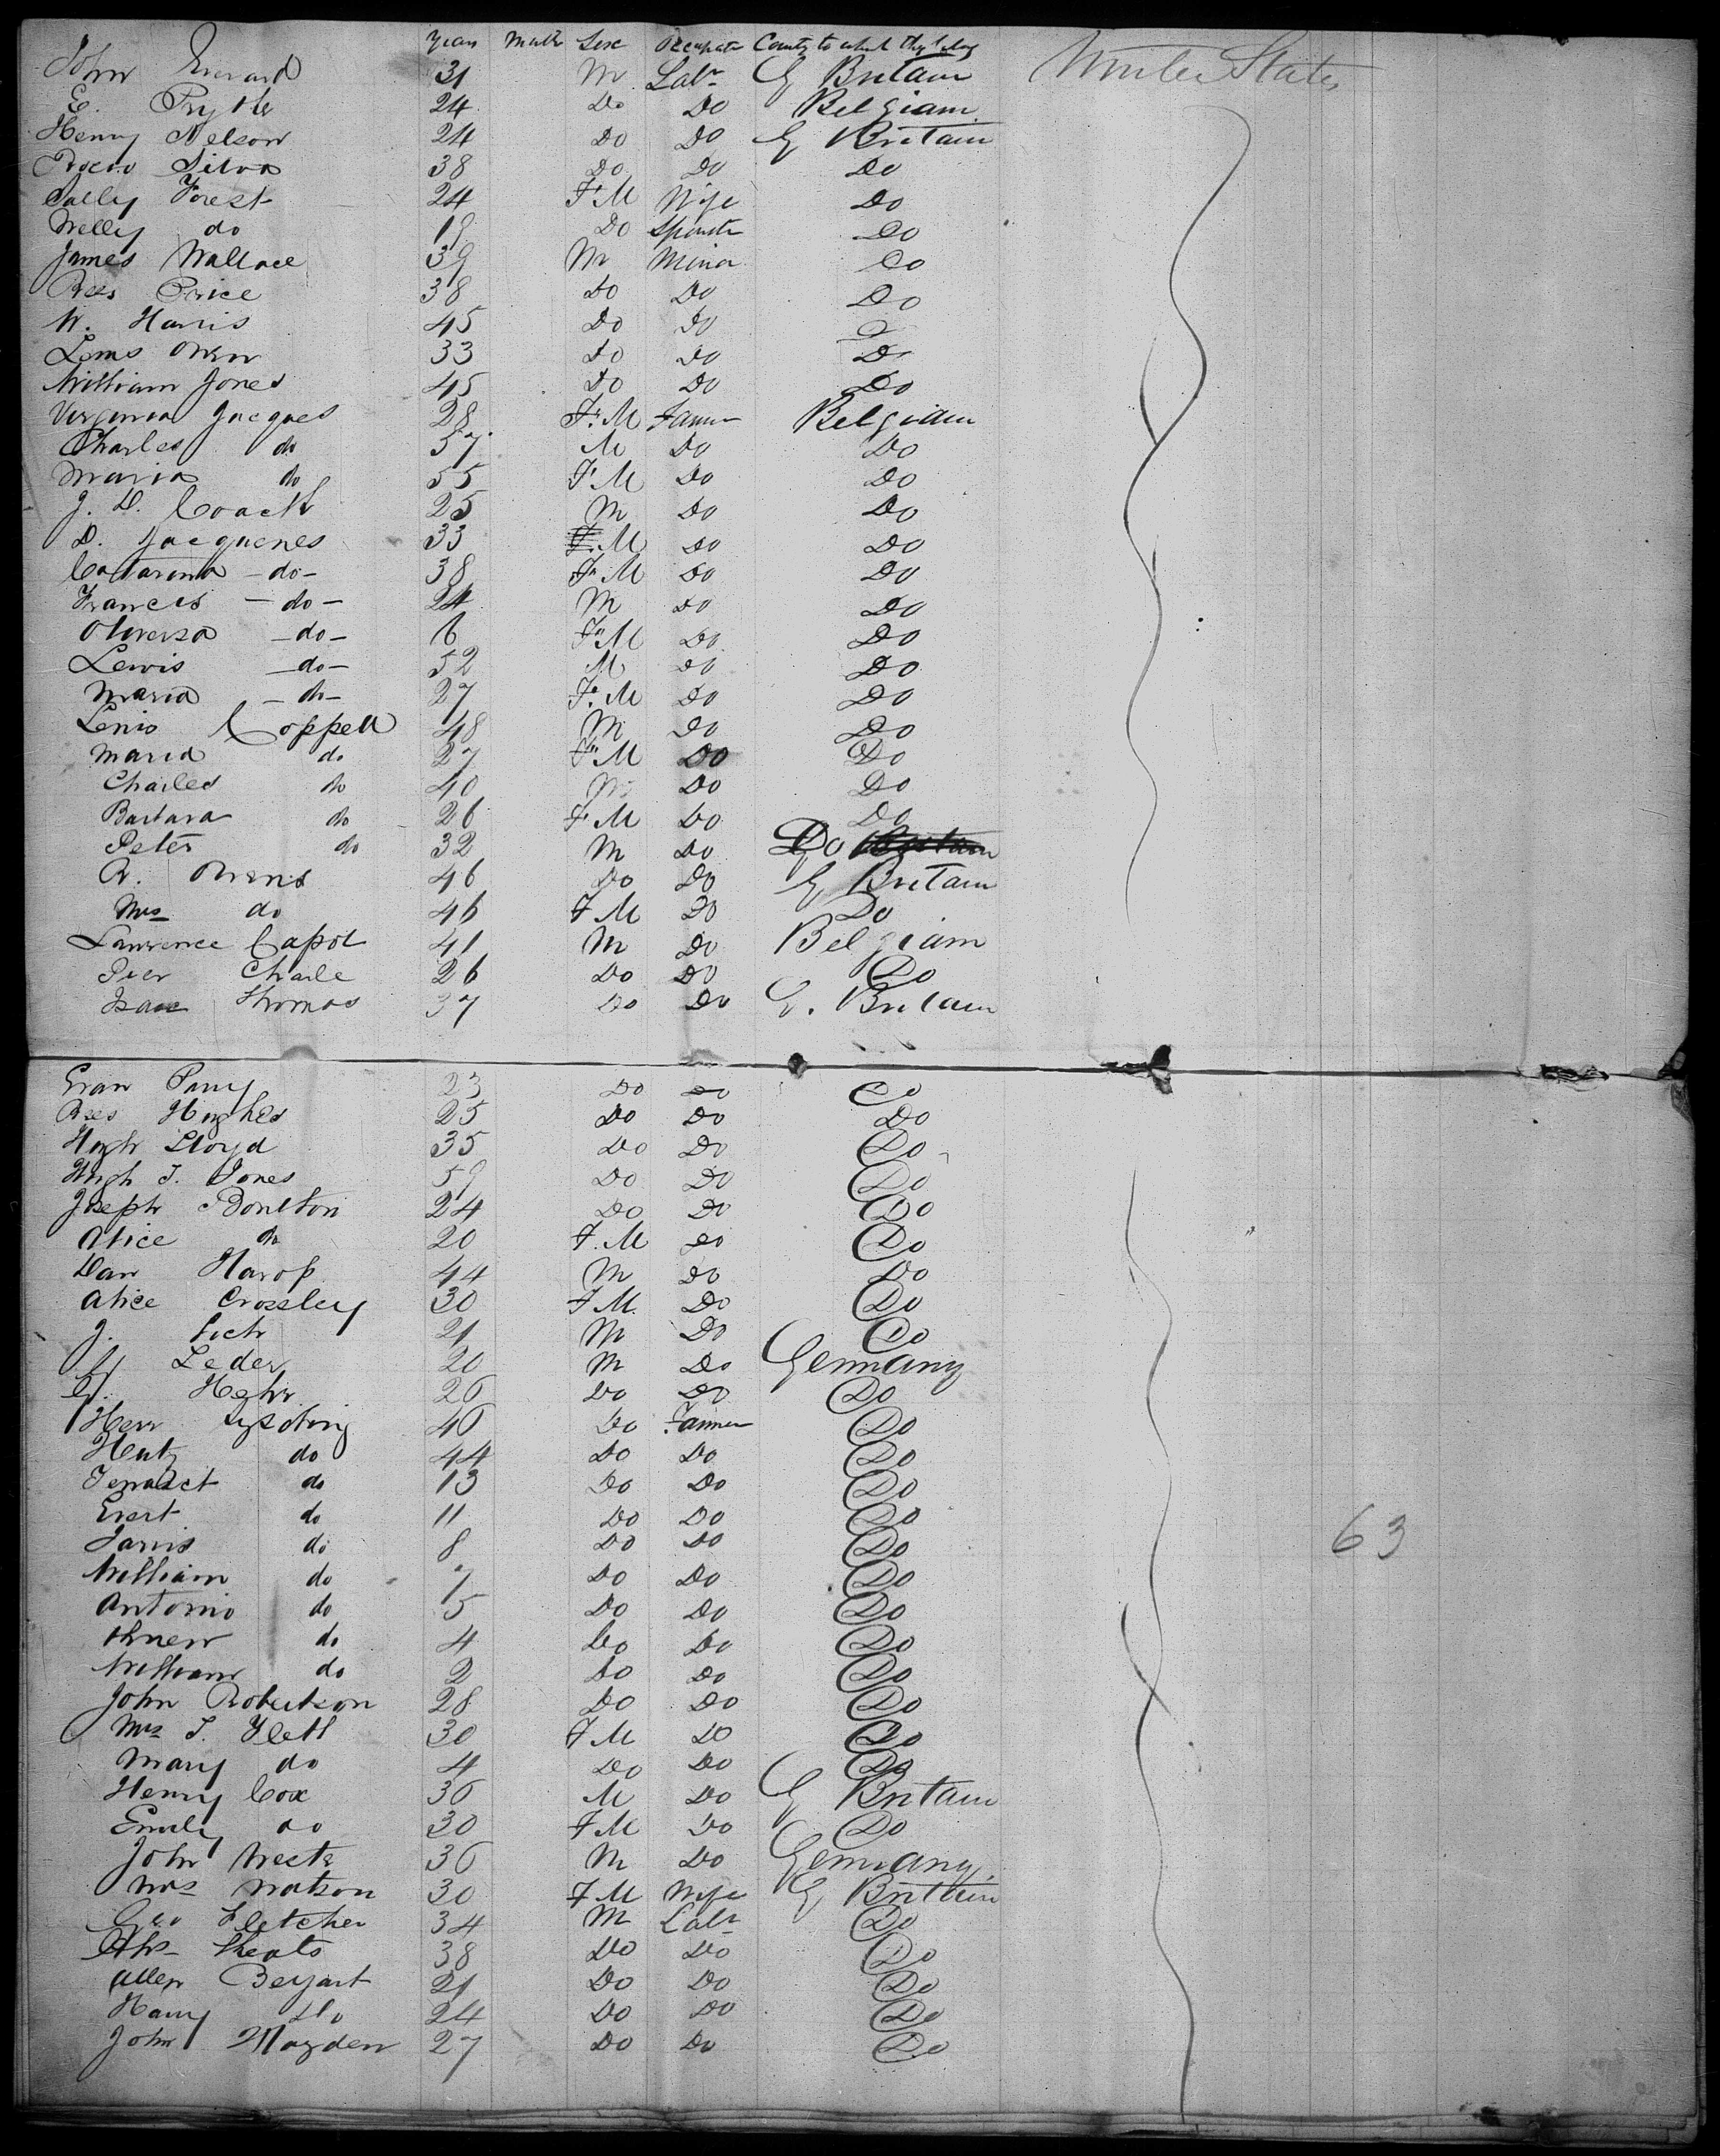 Years Months Sex Occupatn County to which they belong
John Everard 31 M Labr G Britain United States
E. Prythe 24 Do Do Belgiam
Henny Nelson 24 Do Do G Britain
Silva 38 Do Do Do
Sally Forest 24 F.M Wife Do
Nelly do 19 Do Spinster Do
James Wallace 39 M Minor Do
Rees Price 38 Do Do Do
W. Harris 45 Do Do Do
Lewis Owen 33 Do Do Do
William Jones 45 Do Do Do
Virginia Jacques 28 F.M Farmer Belgiam
Charles do 57 M Do Do
Maria do 55 F.M Do Do
J. D. Coack 25 M Do Do
D. Jacquenes 33 M Do Do
Catarina -do- 38 F.M Do Do
Francis -do- 24 M Do Do
-do- 6 F.M Do Do
Lewis -do- 52 M Do Do
Maria -do- 27 F.M Do Do
Lewis Coppell 48 M Do Do
Maria do 27 F.M Do Do
Charles do 40 M Do Do
Barbara do 26 F.M Do Do
Peter do 32 M Do Do
R. Owens 46 Do Do G Britain
Mrs do 46 F.M Do Do
Lawrence Capol 41 M Do Belgiam
Peer Charle 26 Do Do Do
Isaac Thomas 37 Do Do G. Britain
Evan Parry 23 Do Do Do
Rees Hughes 25 Do Do Do
Hugh Lloyd 35 Do Do Do
Hugh T. Jones 59 Do Do Do
Joseph Boulton 24 Do Do Do
Alice do 20 F.M Do Do
Dan Harop 44 M Do Do
Alice Crossley 30 F.M. Do Do
J. 21 M Do Do
Leder 20 M Do Germany
G. Hehr 26 Do Do Do
Herr 46 Do Farmer Do
do 44 Do Do Do
do 13 Do Do Do
Evert do 11 Do Do Do
Jarvis do 8 Do Do Do 63
William do 7 Do Do Do
Antonio do 5 Do Do Do
do 4 Do Do Do
William do 2 Do Do Do
John Robertson 28 Do Do Do
Mrs T. Flett 30 F.M Do Do
Mary do 4 Do Do Do
Henry Cox 36 M Do G Britain
Emily do 30 F.M Do Do
John 36 M Do Germany
Mrs Watson 30 F.M Wife G Britain
Geo Fletcher 34 M Labr Do
Sheats 38 Do Do Do
Allen Beyart 21 Do Do Do
Harry Do 24 Do Do Do
John Hayden 27 Do Do Do